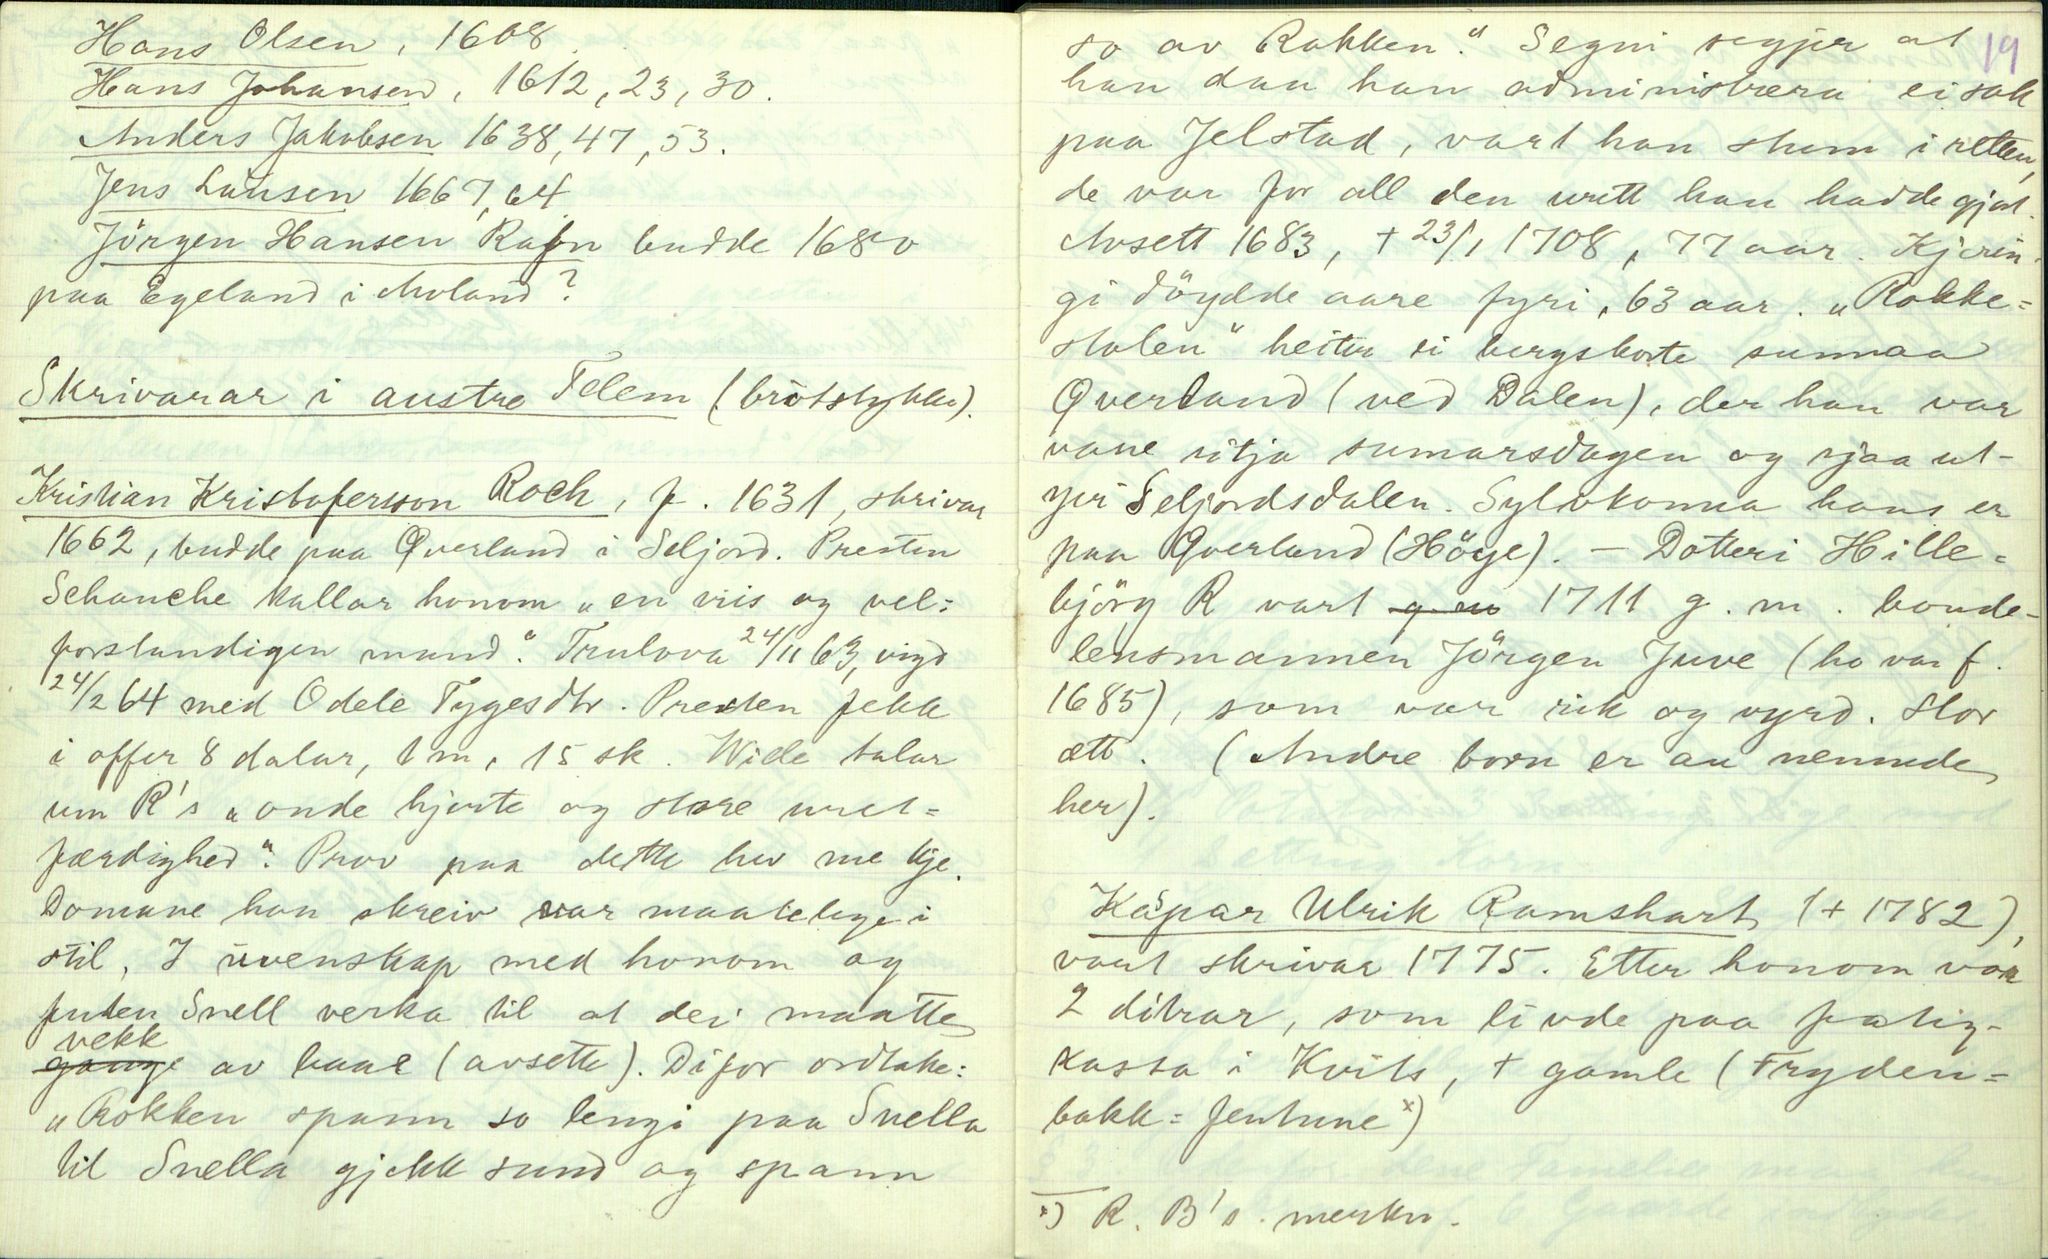 Hans Olsen, 1608.
Hans Johansen, 1612, 23, 30.
Anders Jakobsen 1638, 47, 53.
Jens Lausen 1667, 64
Jörgen Hansen Rafn budde 1680
paa Egeland i Moland?
Skrivarar i austre Telem (brotstykke).
Kristian Kristofersson Roch, f. 1631, skrivar
1662, budde paa Qverland i Seljord. Presten
Schanche kallar honom „en viis og vel=
forstandigen mand“. Trulova 24/11 63, vigd
24/2 64 med Odele Tygesdtr. Presten fekk
i offer 8 dalar, 1 m, 15 sk. Wille talar
um R's „onde hjerte og store uret=
færdighed“. Prov paa dette hev me kje.
Domane han skreiv var maatelege i
stil. I uvenskap med honom og
futen Snell verka til at dei maatte
vekk
gange av baae (avsette). Difor ordtøke:
„Rokken spann so lengi paa Snella
til Snella gjekk sund og spann
19
so av Rokken“. Segni segjer at
han daa han administrera ei sak
paa Jelstad, vart han stum i retten,
de var for all den urett han hadde gjort.
Avsett 1683, + 23/1 1708, 77 aar. Kjerin-
gi döydde aare fyri, 63 aar. „Rokke=
stolen“ heiter ei bergskorte sunnaa
Qverland (ved Dalen), der han var
vane sitja sumarsdagen og sjaa ut-
yvi Seljordsdalen. Sylvkonna hans er
paa Qverland (Höge). — Dotteri Hille=
björg R vart g. m 1711 g. m. bonde-
lensmannen Jörgen Juve (ho var f.
1685), som var rik og vyrd. Stor
ætt. (Andre born er au nemnde
her).
Kaspar Ulrik Ramshart (+ 1782),
vart skrivar 1775. Etter honom var
2 ditrar, som livde paa fatig-
kassa i Kvits, + gamle (Fryden=
bakk = jentune x)
x) R. B's. merkn.